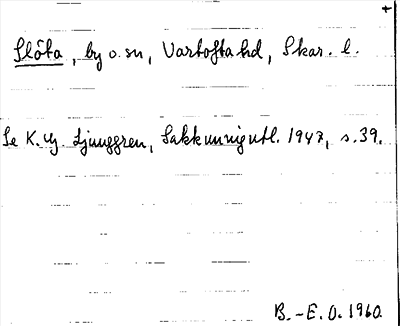 +
Slöta, by o. sn, Vartofta hd, Skar. l.
Se K. G. Ljunggren, Sakkunnigutl. 1947, s. 39.
B.-E. O. 1960.